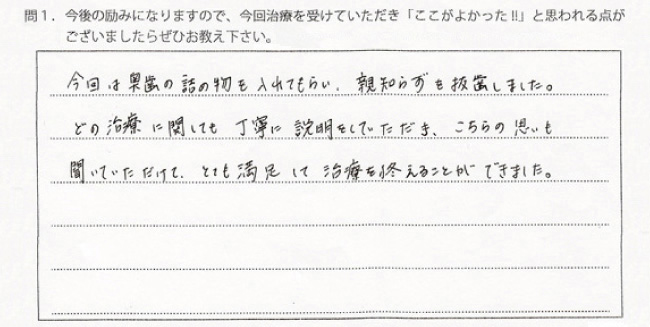 問1．今後の励みになりますので、今回治療を受けていただき「ここがよかった!!」と思われる点が
ございましたらぜひお教え下さい。
今回は奥歯の詰の物を入れてもらい、親知らずを抜歯しました。
どの治療に関しても丁寧に説明をしていただき、こちらの思いも
聞いていただけて、とても満足して治療を終えることができました。